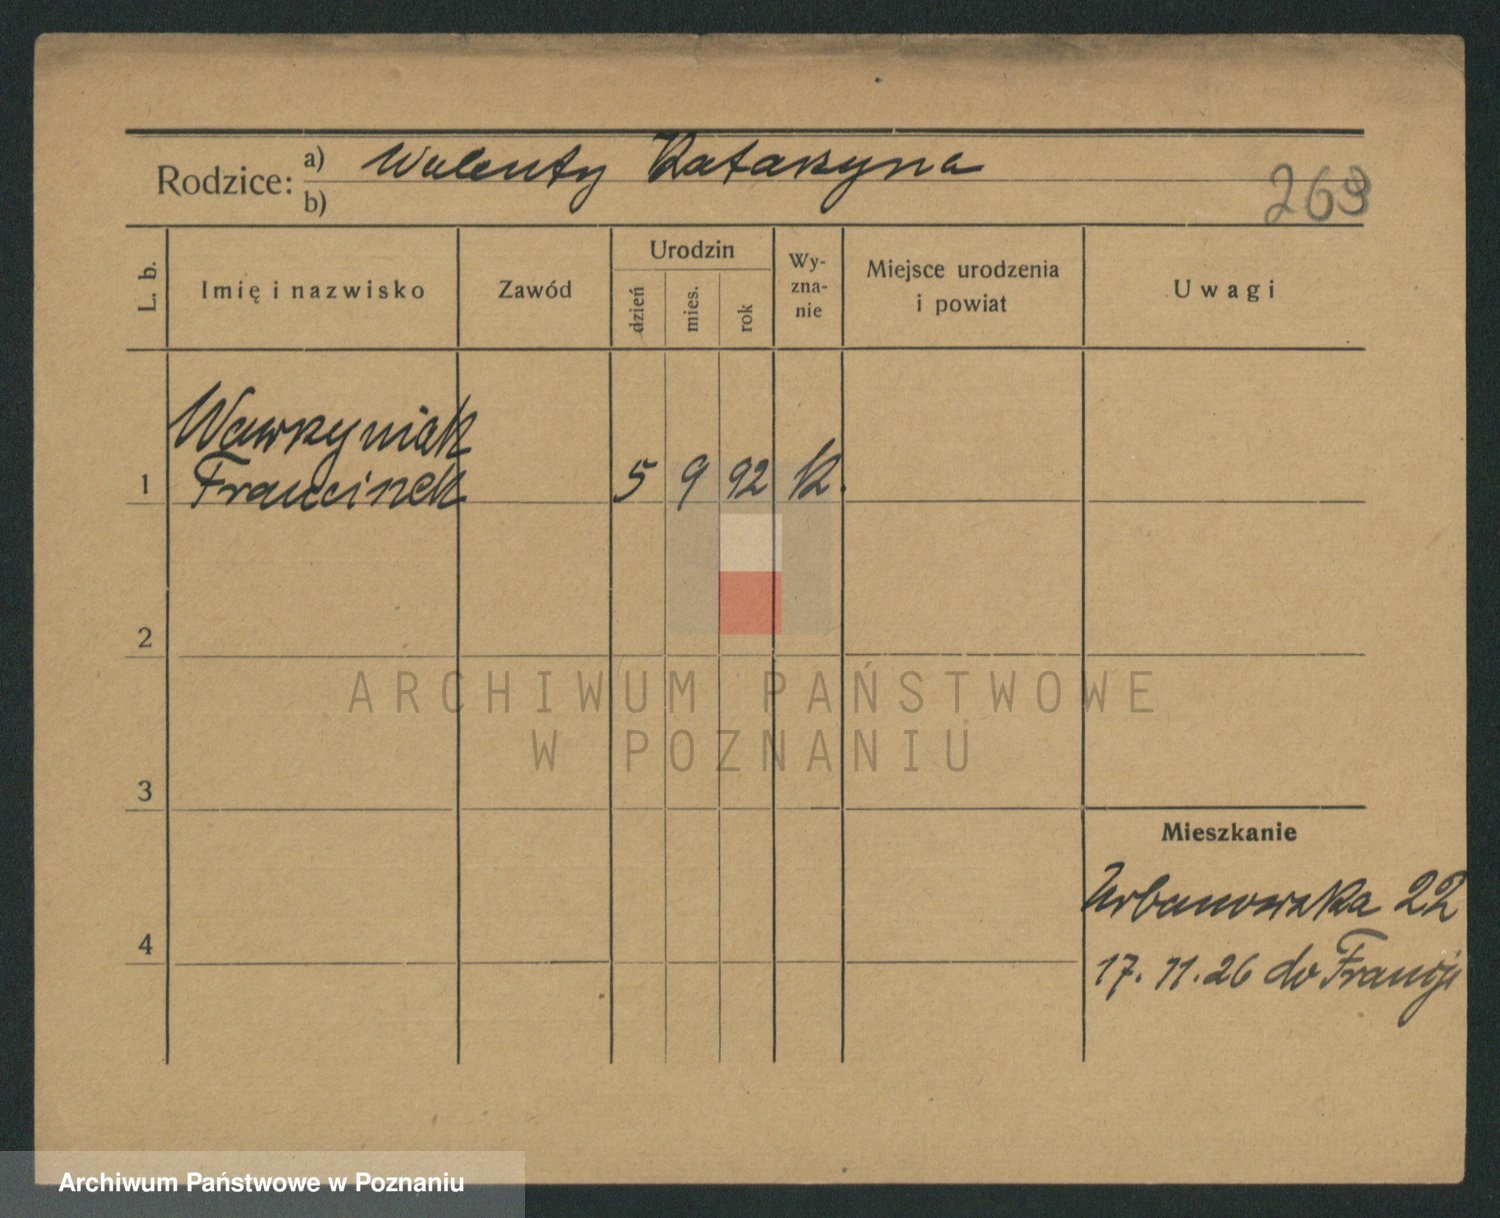 Rodzice: a) Walenty Katarzyna
b)
L. b.
Imię i nazwisko
Zawód
Urodzin
dzień
mies.
rok
Wy-
zna-
nie
Miejsce urodzenia
i powiat
Uwagi
Wawrzyniak
1 Franciszek 5 9 92 k.
2
3
4
Mieszkanie
Urbanowska 22
17. 11. 26 do Francji
ARCHIWUM PAŃSTWOWE
W POZNANIU
Archiwum Państwowe w Poznaniu